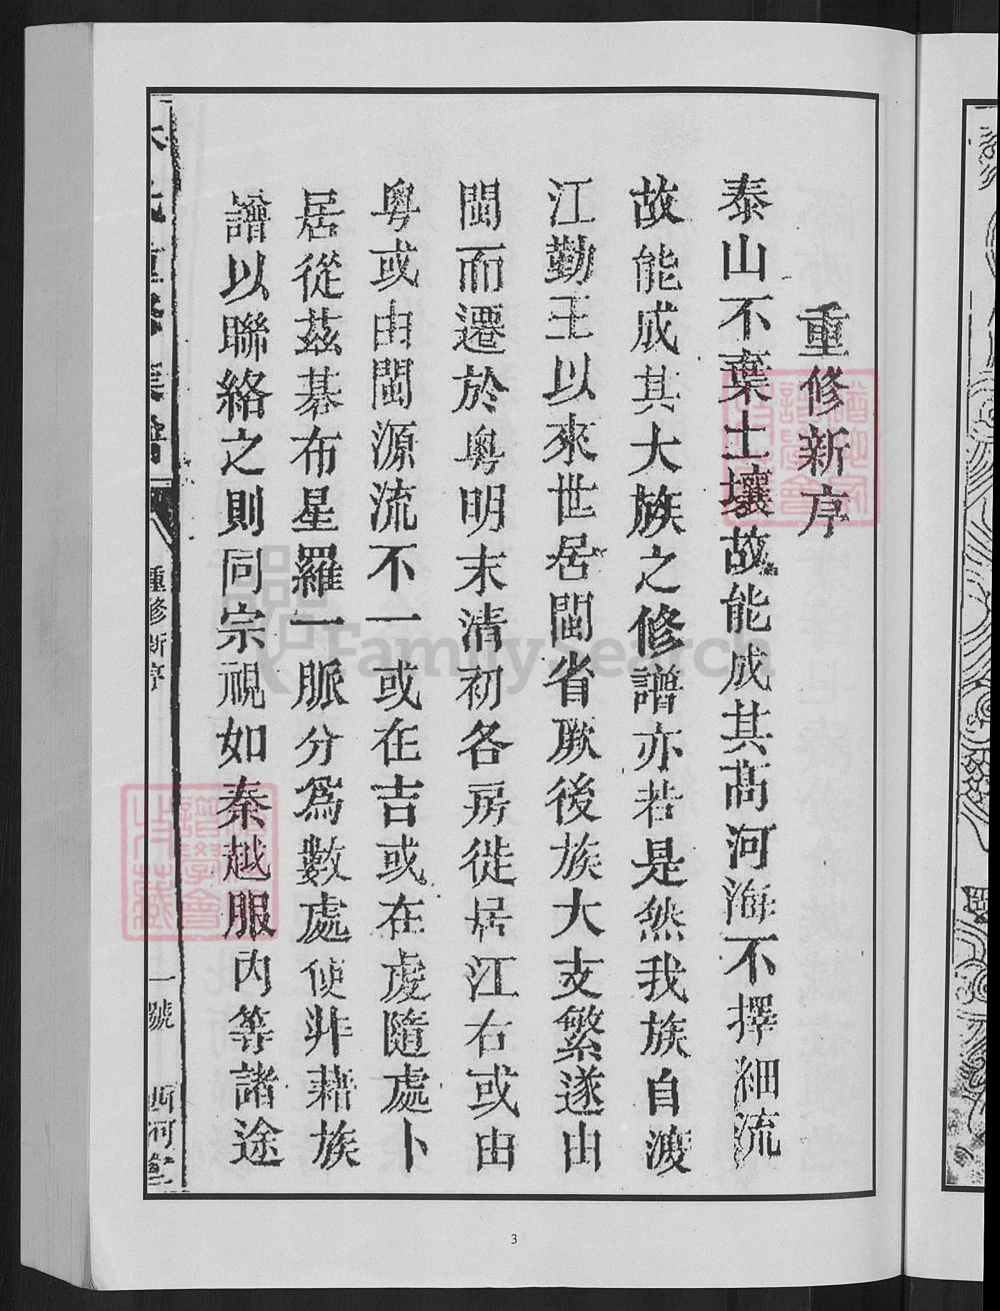 重修新序
泰山不棄土壤故能成其髙河海不擇細流
故能成其大族之修譜亦若是然我族自渡
江勤王以來世居閩省厥後族大支繁遂由
閩而遷於粵明末清初各房徙居江右或由
粵或由閩源流不一或在吉或在虔隨處卜
居從茲碁布星羅一脈分爲數處使非藉族
譜以聯絡之則同宗視如秦越服內等諸途
氏重修族譜
重修新序
一號
西河堂
FamilySearch
3